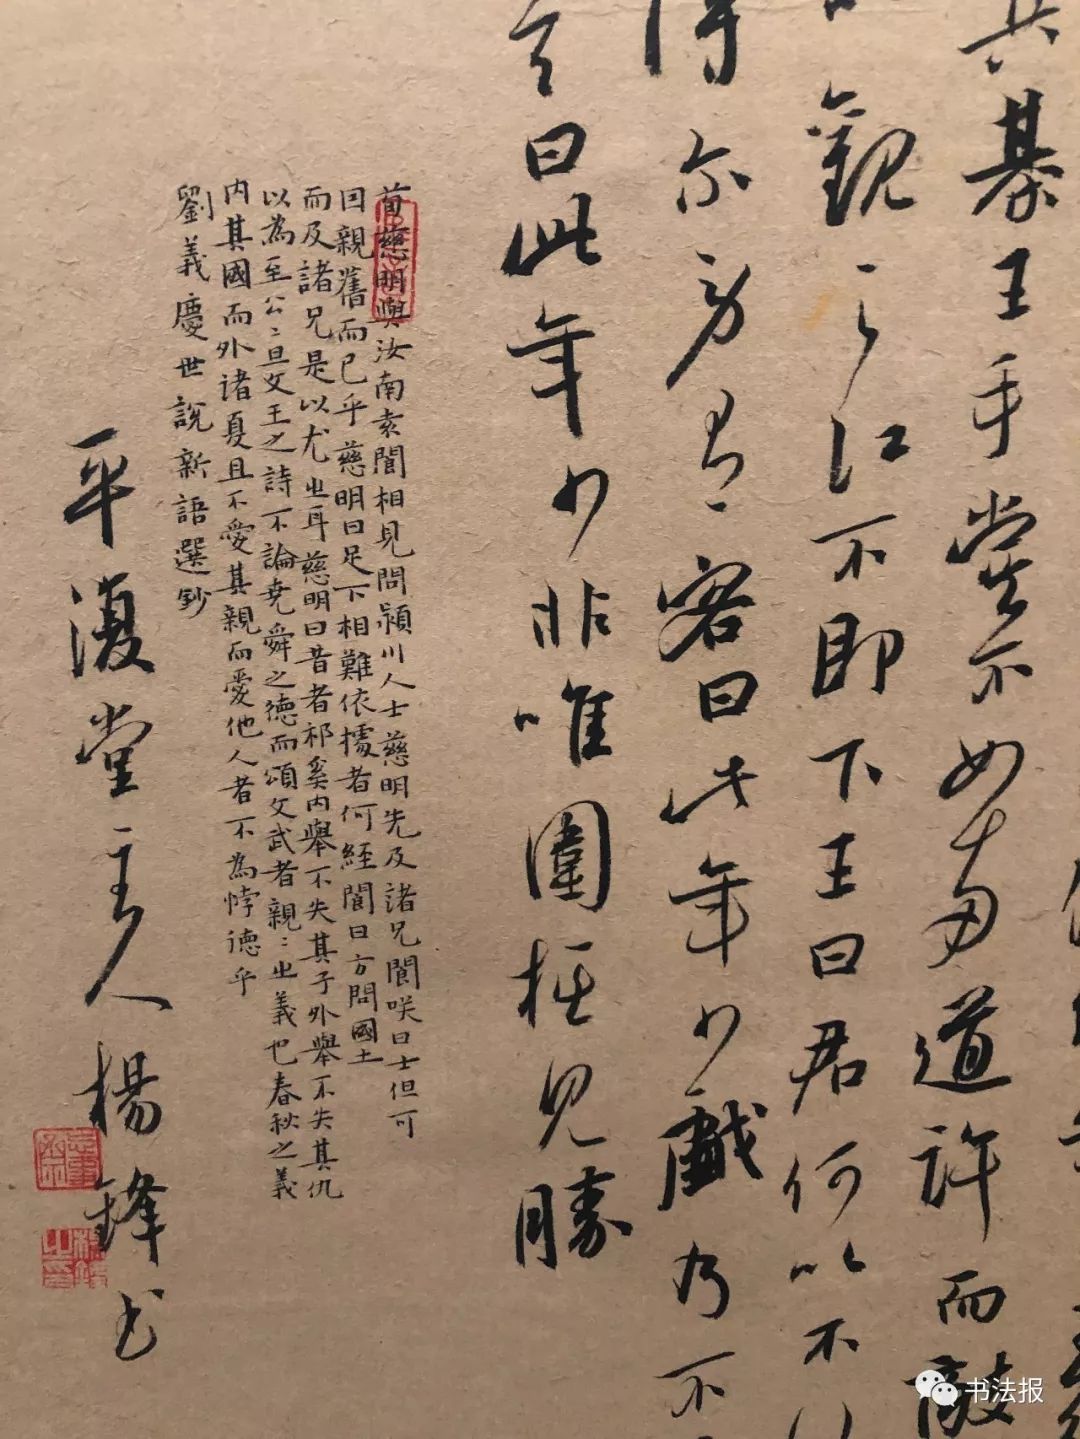 共棊王手嘗不如兩道許而敵
觀之江不即下王曰君何以不
得尔旁有客曰此年少戲乃不
言曰此年少非唯圍棊見勝
荀慈明與汝南袁閬相見問潁川人士慈明先及諸兄閬咲曰士但可
因親舊而已乎慈明曰足下相難依據者何經閬曰方問國士
而及諸兄是以尤之耳慈明曰昔者祁奚內舉不失其子外舉不失其仇
以為至公公旦文王之詩不論堯舜之德而頌文武者親親之義也春秋之義
內其國而外诸夏且不愛其親而愛他人者不為悖德乎
劉義慶世說新語選鈔
平復堂主人楊鋒书
书法报